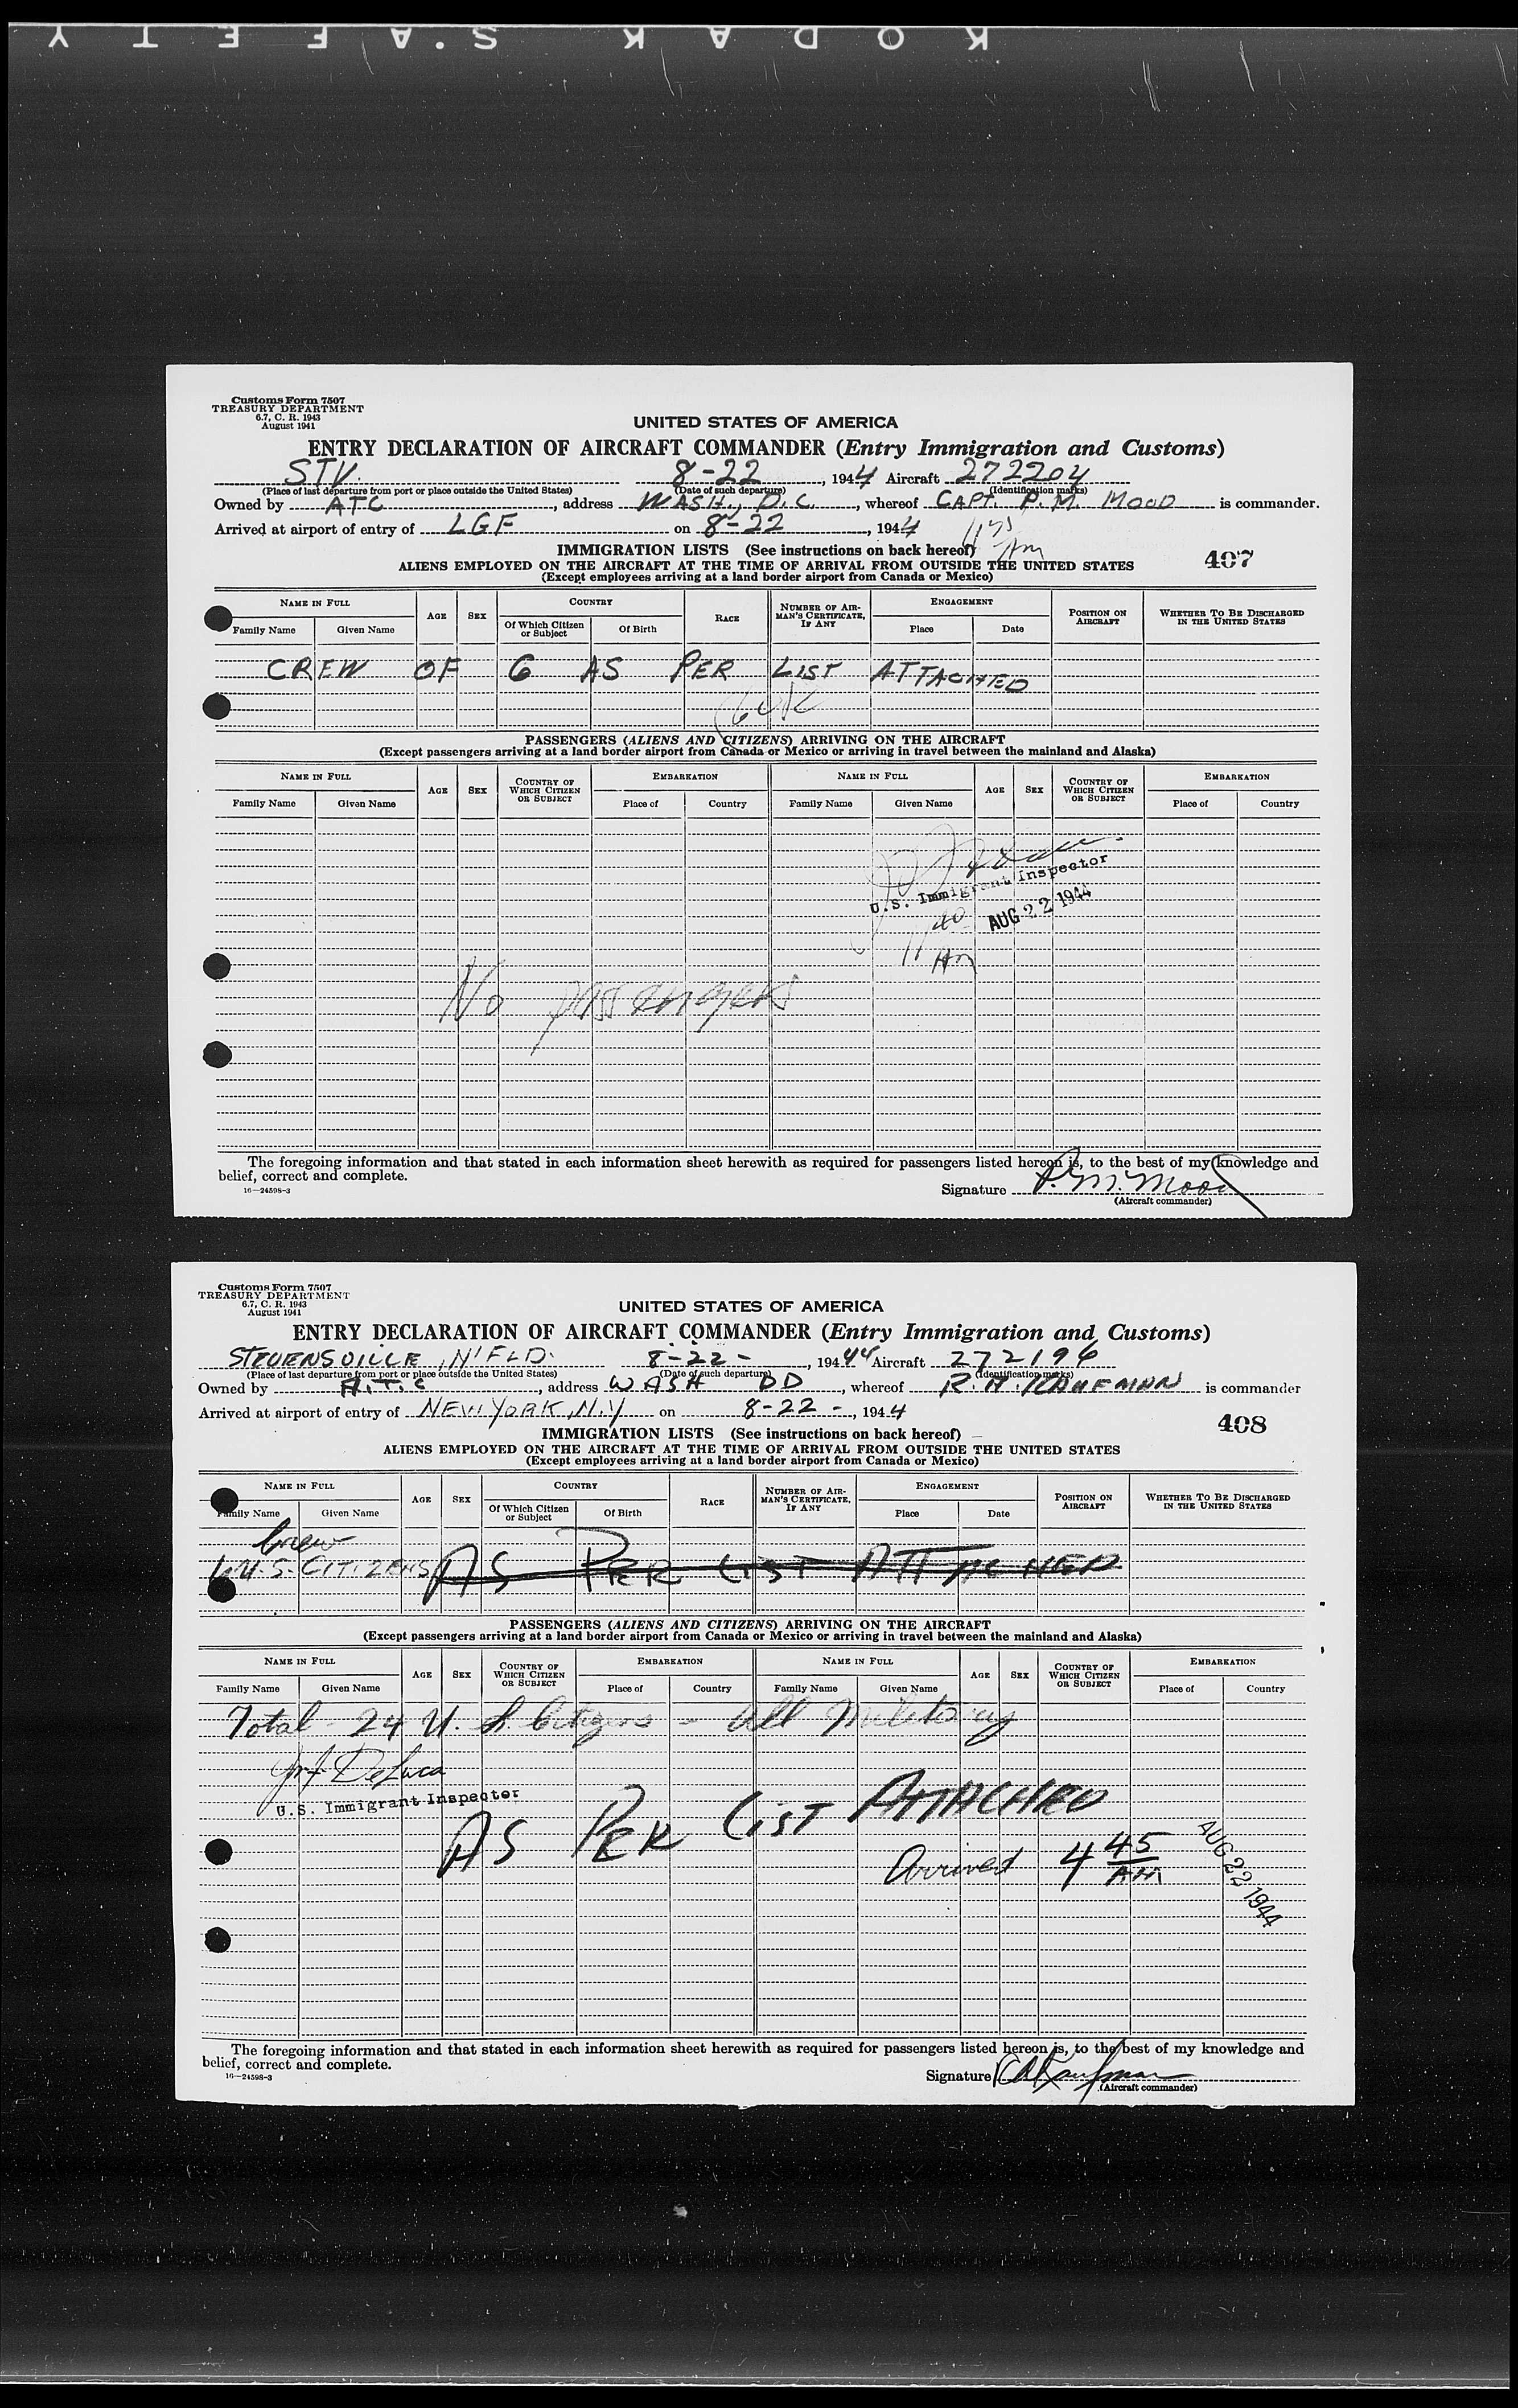 KODAK SAFETY
Customs Form 7507
TREASURY DEPARTMENT
6.7, C. R. 1943
August 1941
UNITED STATES OF AMERICA
ENTRY DECLARATION OF AIRCRAFT COMMANDER (Entry Immigration and Customs)
STV. 8-22, 1944 Aircraft 272204
(Place of last departure from port or place outside the United States) (Date of such departure) (Identification marks)
Owned by ATC, address WASH., D.C., whereof CAPT. P.M. MOOD is commander.
Arrived at airport of entry of LGF on 8-22, 1944
AM
IMMIGRATION LISTS (See instructions on back hereof)
407
ALIENS EMPLOYED ON THE AIRCRAFT AT THE TIME OF ARRIVAL FROM OUTSIDE THE UNITED STATES
(Except employees arriving at a land border airport from Canada or Mexico)
NAME IN FULL AGE SEX COUNTRY RACE NUMBER OF AIRMAN'S CERTIFICATE, IF ANY ENGAGEMENT POSITION ON AIRCRAFT WHETHER TO BE DISCHARGED IN THE UNITED STATES
Family Name Given Name Of Which Citizen or Subject Of Birth Place Date
CREW OF 6 AS PER LIST ATTACHED
PASSENGERS (ALIENS AND CITIZENS) ARRIVING ON THE AIRCRAFT
(Except passengers arriving at a land border airport from Canada or Mexico or arriving in travel between the mainland and Alaska)
NAME IN FULL AGE SEX COUNTRY OF WHICH CITIZEN OR SUBJECT EMBARKATION NAME IN FULL AGE SEX COUNTRY OF WHICH CITIZEN OR SUBJECT EMBARKATION
Family Name Given Name Place of Country Family Name Given Name Place of Country
U.S. Immigrant Inspector
AUG 22 1944
11 40 AM
No passengers
The foregoing information and that stated in each information sheet herewith as required for passengers listed hereon is, to the best of my knowledge and
belief, correct and complete.
16—24598-3
Signature P. M. Mood
(Aircraft commander)
Customs Form 7507
TREASURY DEPARTMENT
6.7, C. R. 1943
August 1941
UNITED STATES OF AMERICA
ENTRY DECLARATION OF AIRCRAFT COMMANDER (Entry Immigration and Customs)
STEVENSVILLE, N'FLD. 8-22-, 19444 Aircraft 272196
(Place of last departure from port or place outside the United States) (Date of such departure) (Identification marks)
Owned by A.T.C, address WASH DD, whereof R.A. KAUFMAN is commander
Arrived at airport of entry of NEW YORK, N.Y on 8-22-, 1944
408
IMMIGRATION LISTS (See instructions on back hereof)
ALIENS EMPLOYED ON THE AIRCRAFT AT THE TIME OF ARRIVAL FROM OUTSIDE THE UNITED STATES
(Except employees arriving at a land border airport from Canada or Mexico)
NAME IN FULL AGE SEX COUNTRY RACE NUMBER OF AIRMAN'S CERTIFICATE, IF ANY ENGAGEMENT POSITION ON AIRCRAFT WHETHER TO BE DISCHARGED IN THE UNITED STATES
Family Name Given Name Of Which Citizen or Subject Of Birth Place Date
Crew
U.S. CITIZENS AS PER LIST ATTACHED
PASSENGERS (ALIENS AND CITIZENS) ARRIVING ON THE AIRCRAFT
(Except passengers arriving at a land border airport from Canada or Mexico or arriving in travel between the mainland and Alaska)
NAME IN FULL AGE SEX COUNTRY OF WHICH CITIZEN OR SUBJECT EMBARKATION NAME IN FULL AGE SEX COUNTRY OF WHICH CITIZEN OR SUBJECT EMBARKATION
Family Name Given Name Place of Country Family Name Given Name Place of Country
Total - 24 U. S. Citizens - all Military
DeLuca
U.S. Immigrant Inspector
AS PER LIST ATTACHED
Arrived 4 45 AM
AUG 22 1944
The foregoing information and that stated in each information sheet herewith as required for passengers listed hereon is, to the best of my knowledge and
belief, correct and complete.
16—24598-3
Signature RA Kaufman
(Aircraft commander)